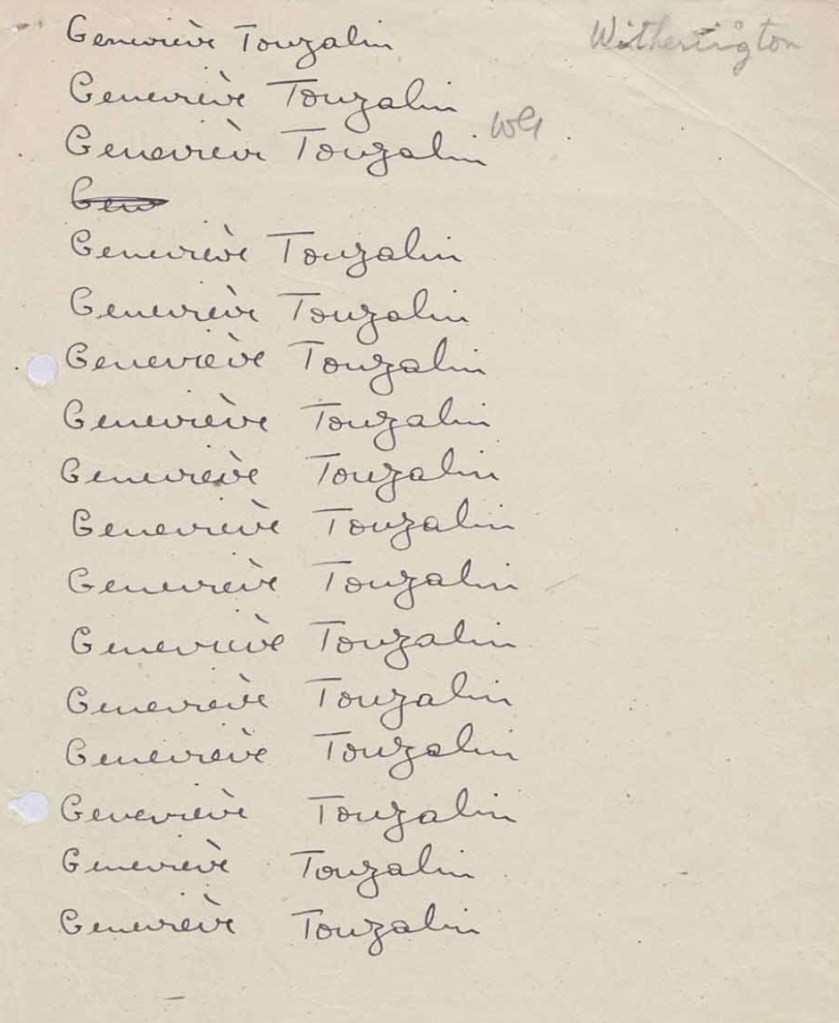 Geneviève Touzalin
Witherington
Geneviève Touzalin
Geneviève Touzalin
Gen
Geneviève Touzalin
Geneviève Touzalin
Geneviève Touzalin
Geneviève Touzalin
Geneviève Touzalin
Geneviève Touzalin
Geneviève Touzalin
Geneviève Touzalin
Geneviève Touzalin
Geneviève Touzalin
Geneviève Touzalin
Geneviève Touzalin
Geneviève Touzalin